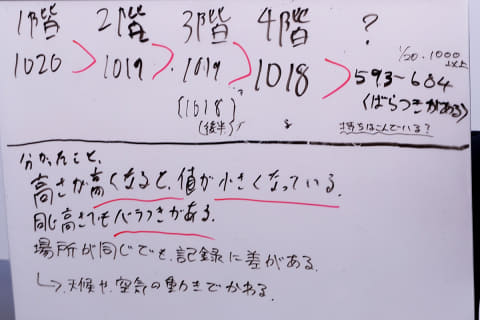 1階 2階 3階 4階 ?
1020 1019 1019 1018 593~684
1/20・1000以上
(1618)
(後半)
(ばらつきがある)
分かったこと、
高さが高くなると、値が小さくなっている。
同じ高さでもバラつきがある。
場所が同じでも、記録に差がある。
↳天候や、空気の動きでかわる。